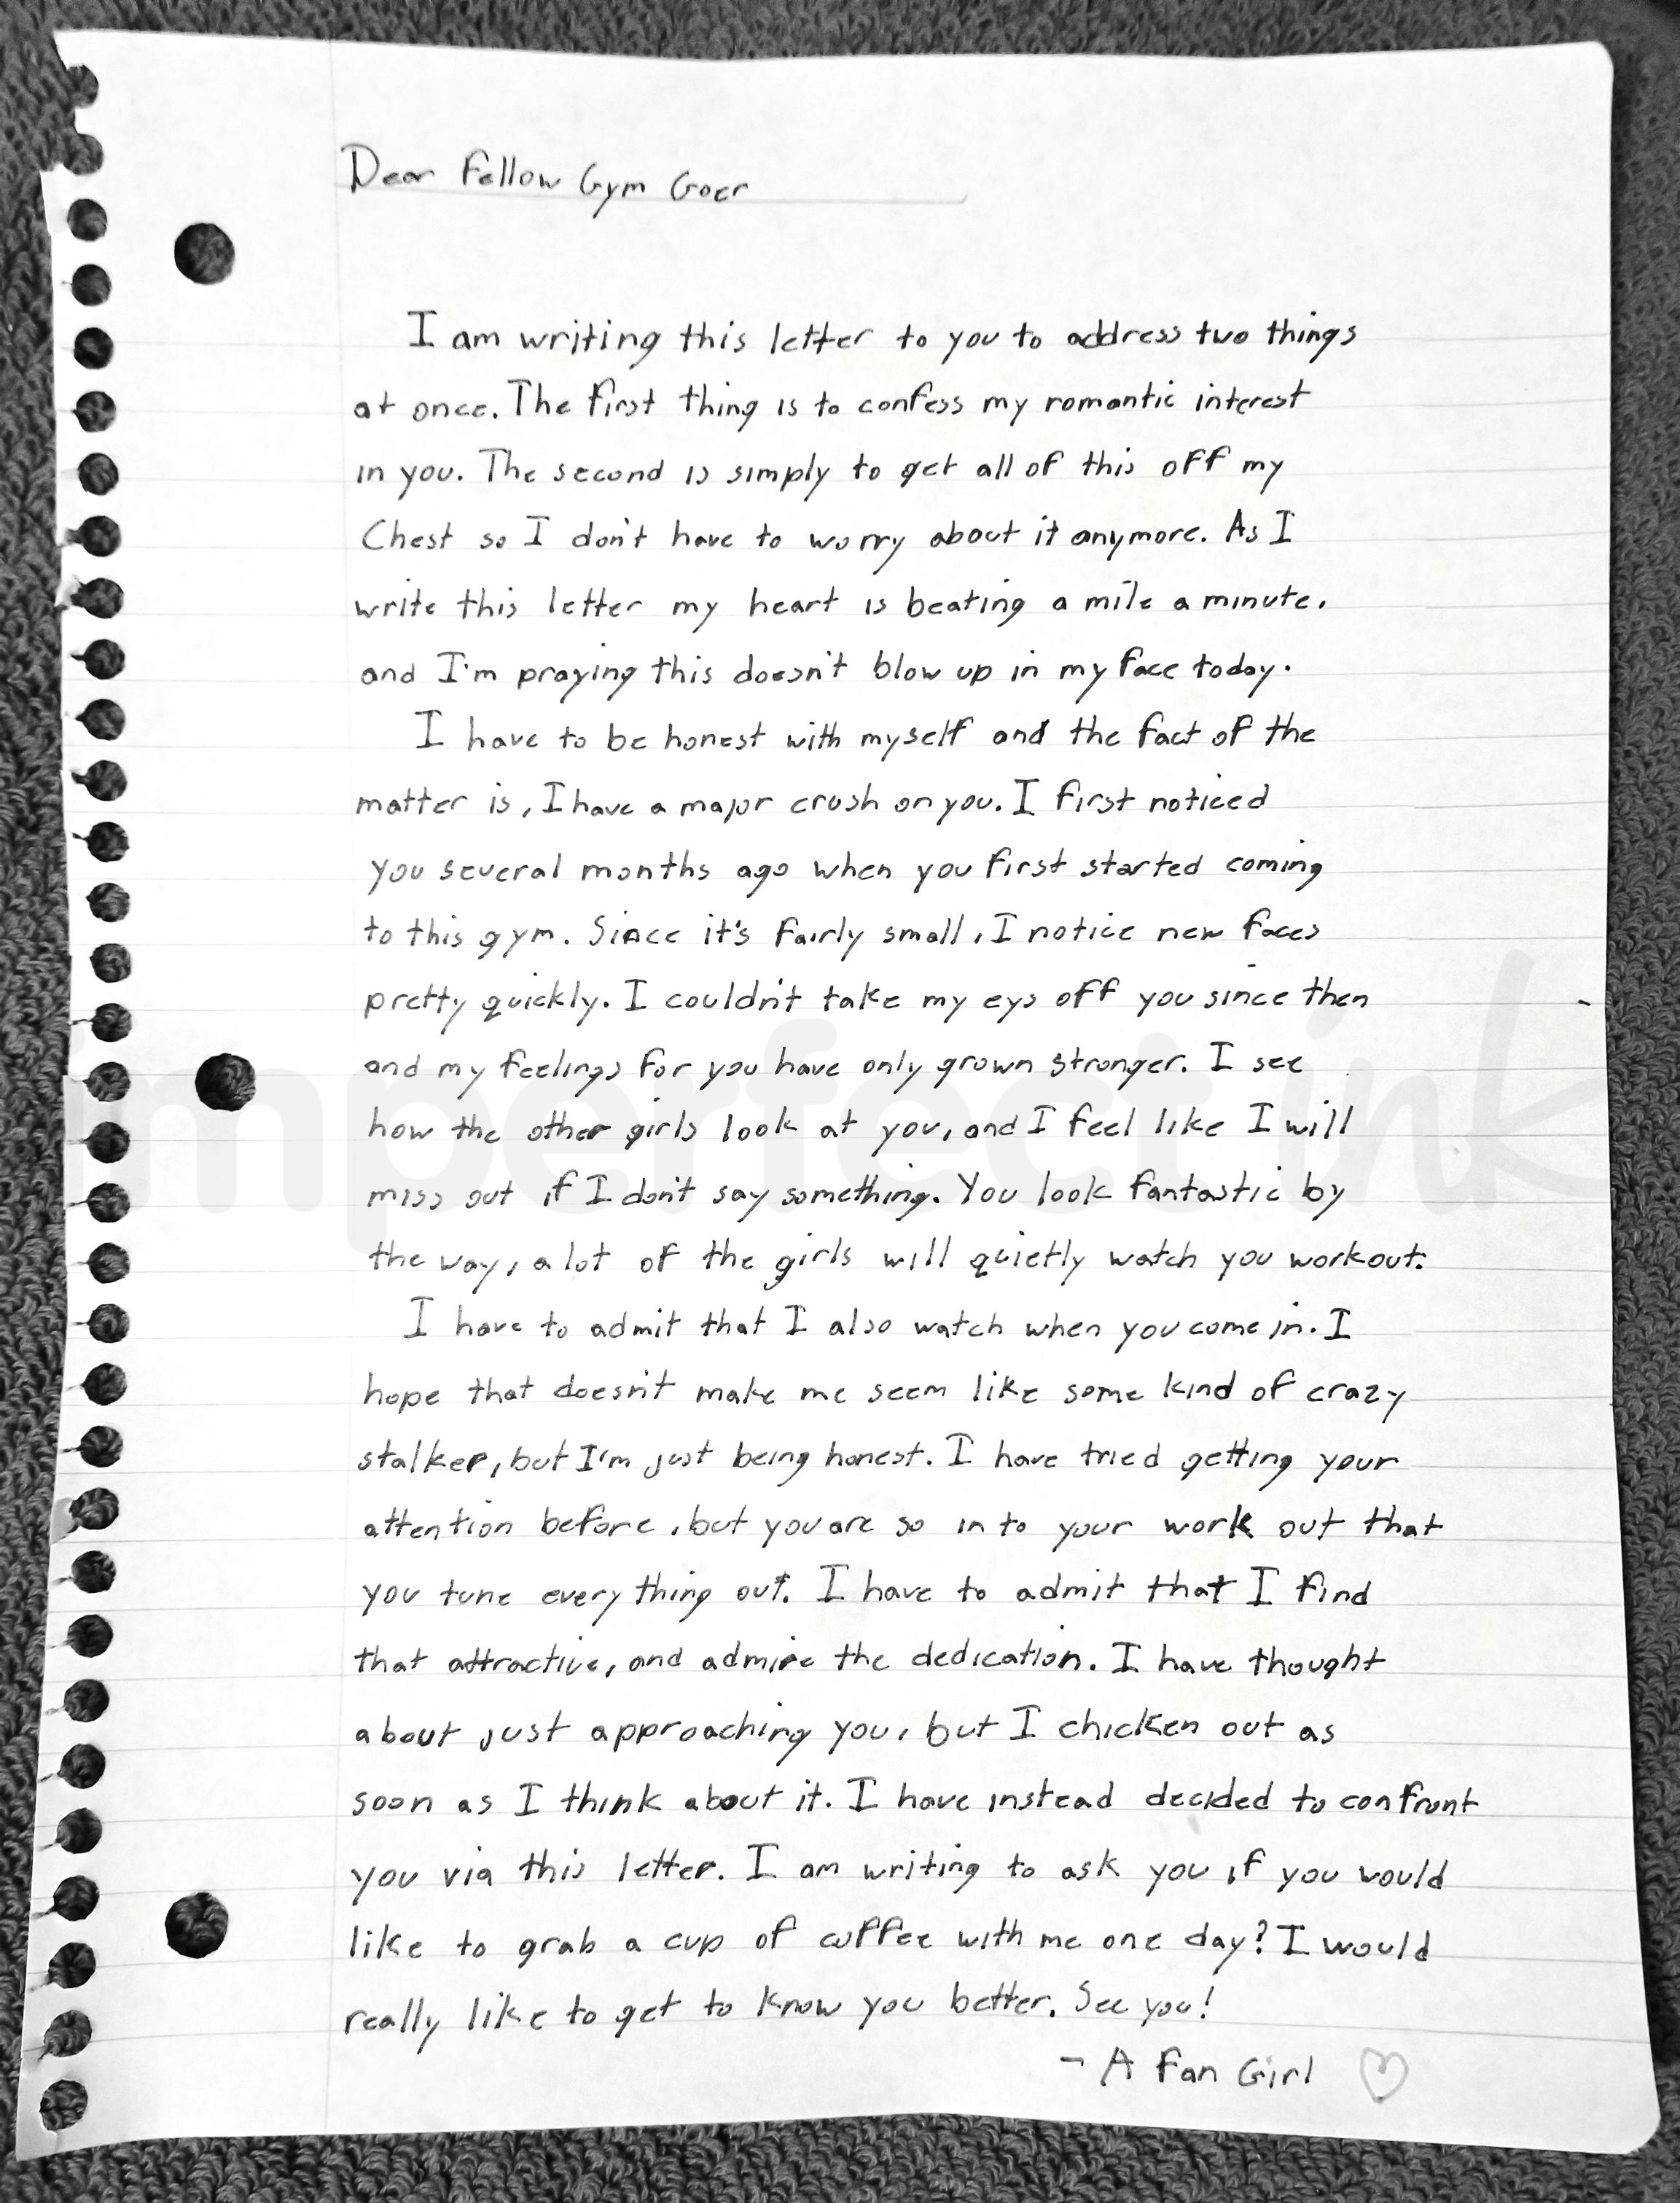 Dear Fellow Gym Goer
I am writing this letter to you to address two things
at once. The first thing is to confess my romantic interest
in you. The second is simply to get all of this off my
Chest so I don't have to worry about it anymore. As I
write this letter my heart is beating a mile a minute.
and I'm praying this doesn't blow up in my face today.
I have to be honest with myself and the fact of the
matter is, I have a major crush on you. I first noticed
you several months ago when you first started coming
to this gym. Since it's fairly small, I notice new faces
pretty quickly. I couldn't take my eys off you since then
and my feelings for you have only grown stronger. I see
how the other girls look at you, and I feel like I will
miss out if I don't say something. You look fantastic by
the way, a lot of the girls will quietly watch you workout.
I have to admit that I also watch when you come in. I
hope that doesn't make me seem like some kind of crazy
stalker, but I'm just being honest. I have tried getting your
attention before, but you are so in to your work out that
you tune every thing out. I have to admit that I find
that attractive, and admire the dedication. I have thought
about just approaching you, but I chicken out as
soon as I think about it. I have instead decided to confront
you via this letter. I am writing to ask you if you would
like to grab a cup of coffee with me one day? I would
really like to get to know you better. See you!
- A Fan Girl
imperfect ink